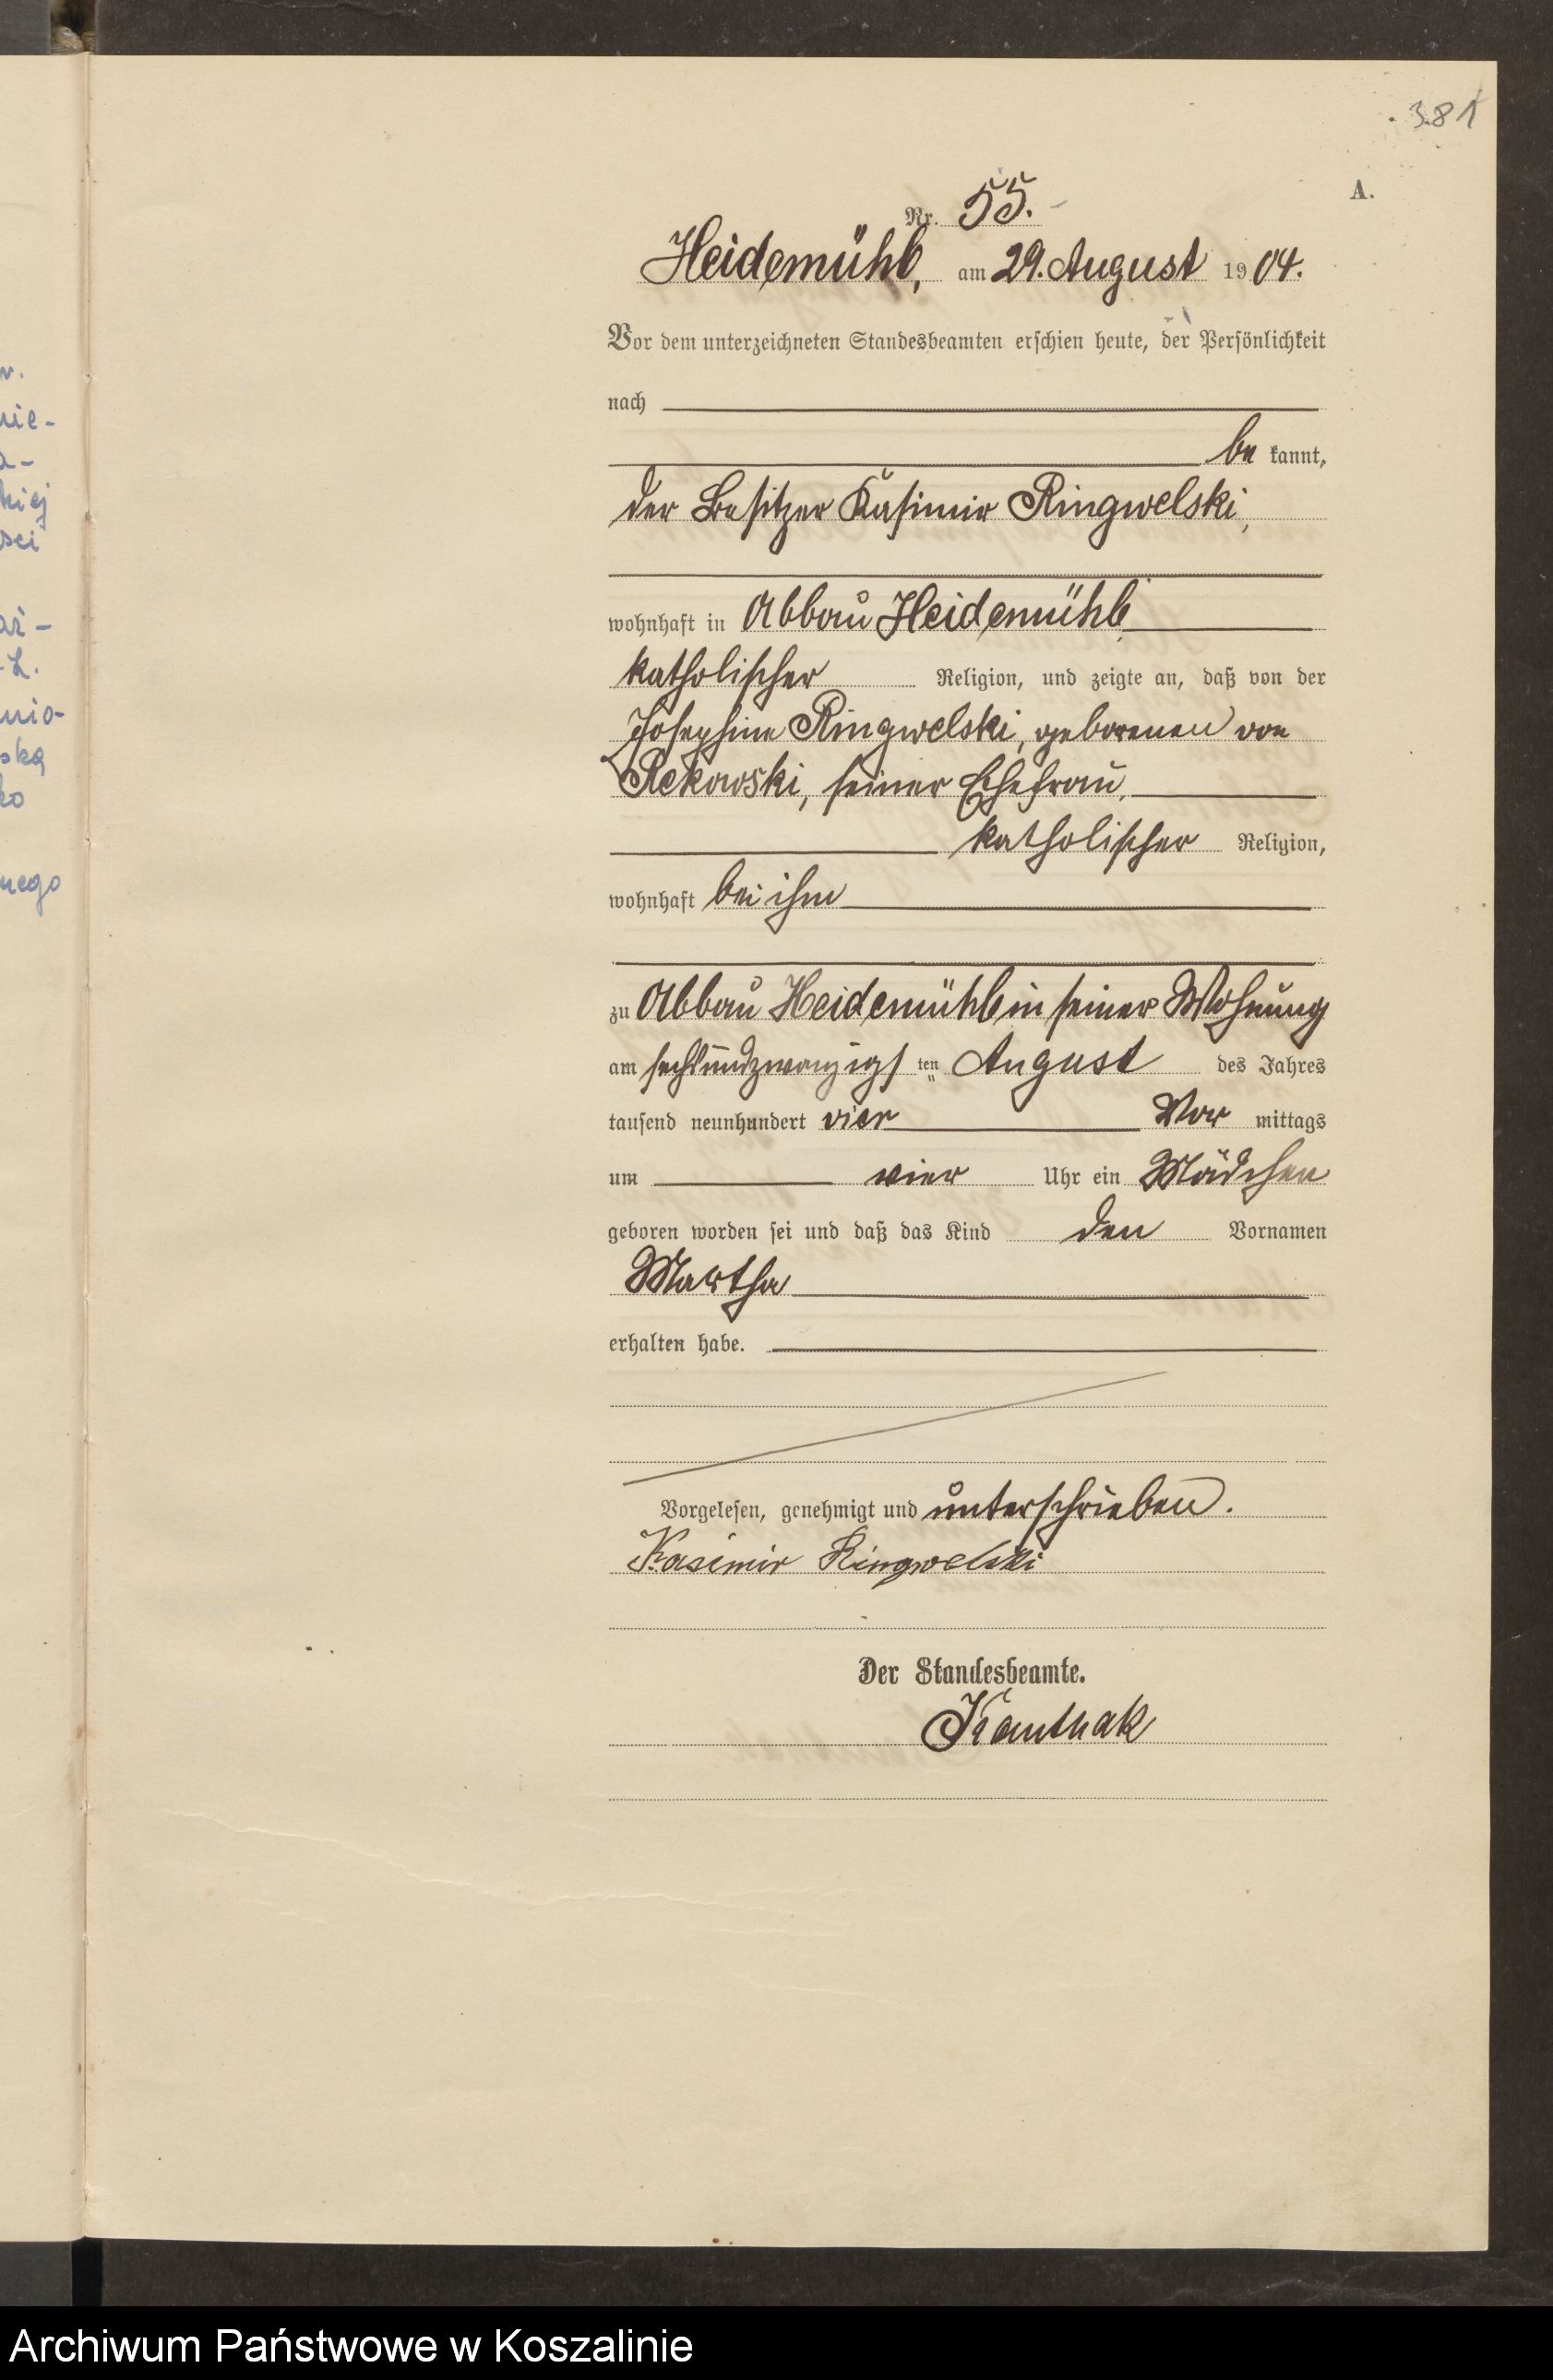 381
A.
Nr. 55.
Heidemühl, am 29. August 1904.
Vor dem unterzeichneten Standesbeamten erschien heute, der Persönlichkeit
nach
be kannt,
der Besitzer Kasimir Ringwelski,
wohnhaft in Abbau Heidemühl
katholischer Religion, und zeigte an, daß von der
Josephine Ringwelski, geborenen von
Rekowski, seiner Ehefrau,
katholischer Religion,
wohnhaft bei ihm
zu Abbau Heidemühl in seiner Wohnung
am sechsundzwanzigs ten August des Jahres
tausend neunhundert vier Vor mittags
um vier Uhr ein Mädchen
geboren worden sei und daß das Kind den Vornamen
Martha
erhalten habe.
Vorgelesen, genehmigt und unterschrieben.
Kasimir Ringwelski
Der Standesbeamte.
Kauthak
w.
nie-
a-
kiej
ści
ar-
-L.
nio-
ską
ko
nego
Archiwum Państwowe w Koszalinie